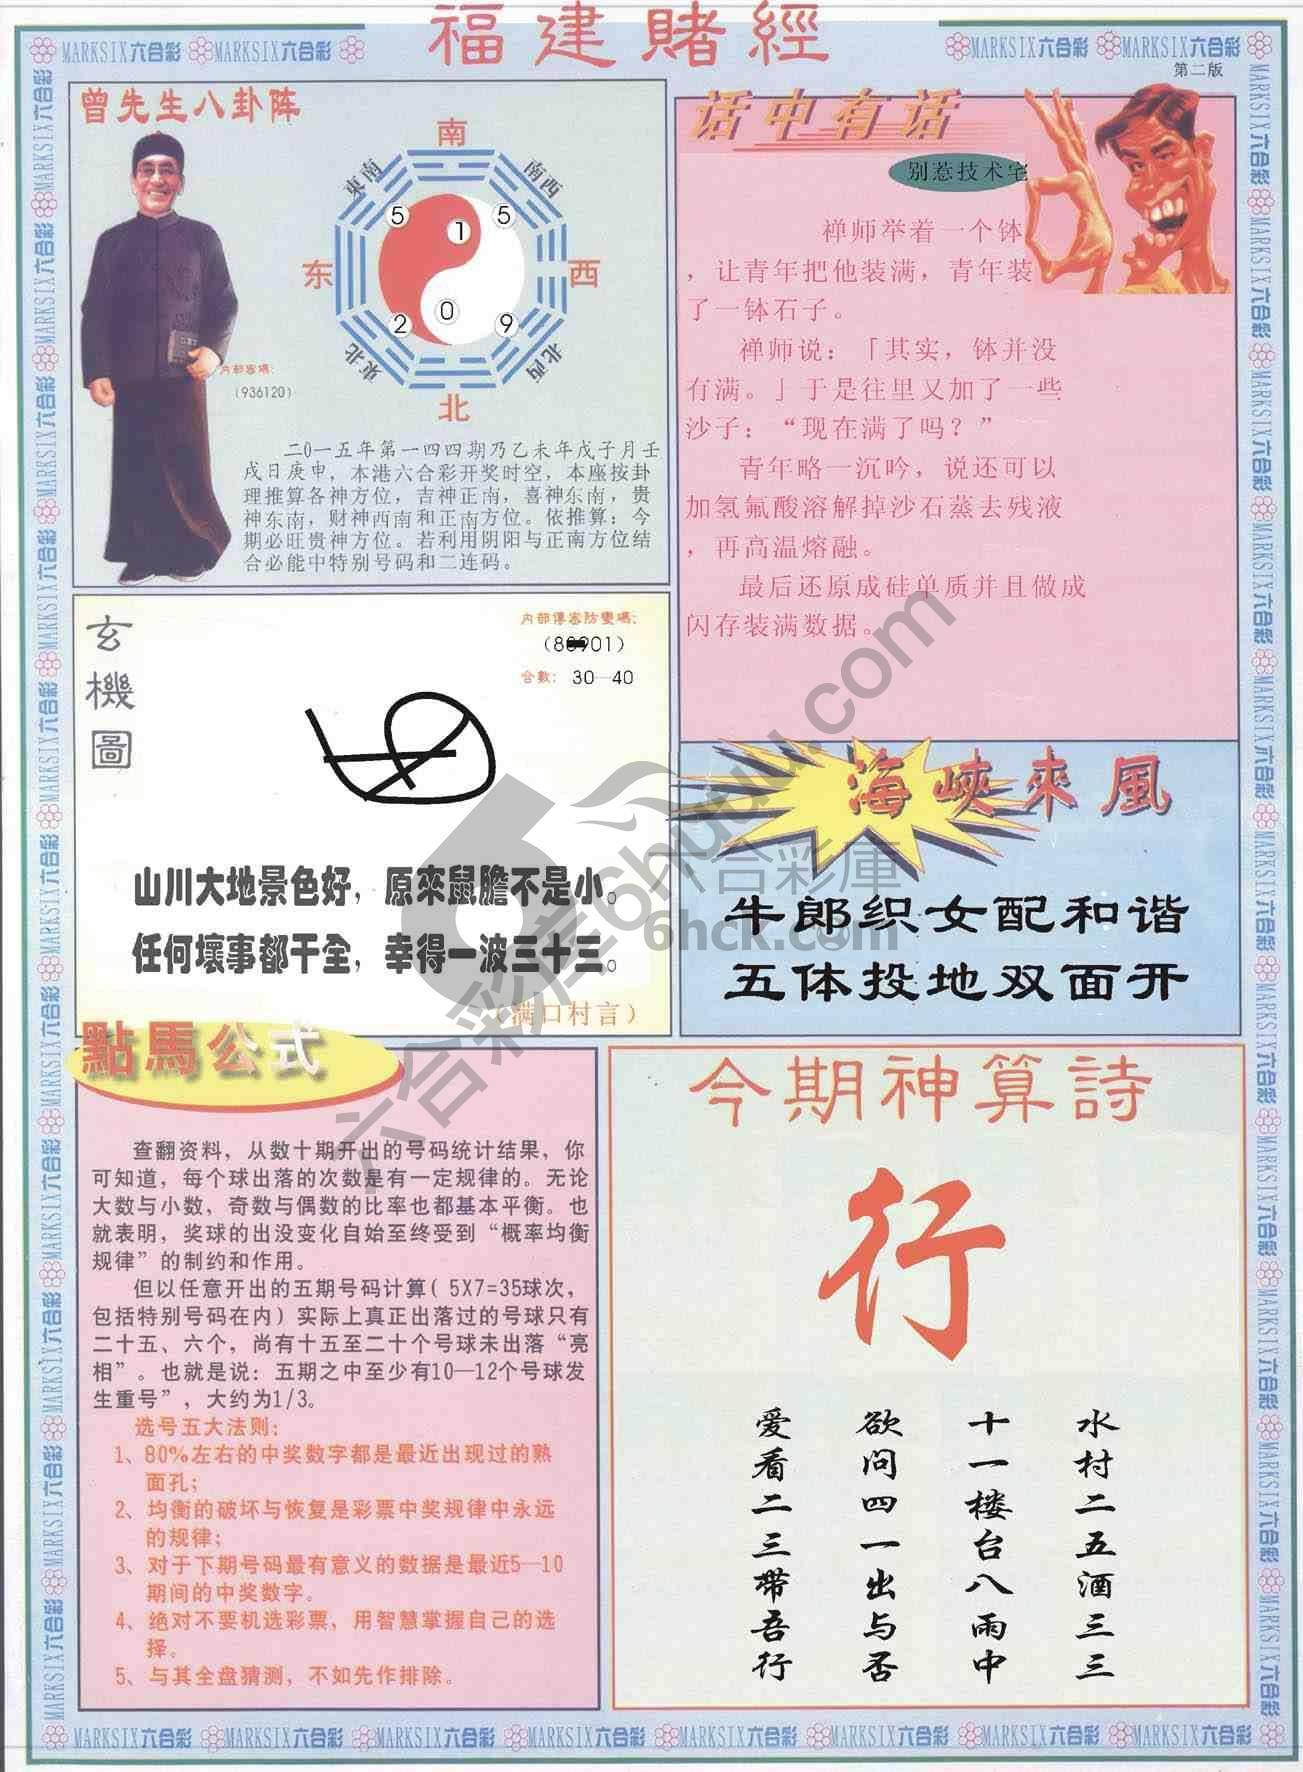 福建賭經
MARKSIX六合彩 MARKSIX六合彩
MARKSIX六合彩 MARKSIX六合彩
第二版
曾先生八卦阵
南
東南
南西
5
1
5
东
西
2
0
9
東北
北西
北
内部密碼：
（936120）
二0一五年第一四四期乃乙未年戊子月壬
戌日庚申，本港六合彩开奖时空，本座按卦
理推算各神方位，吉神正南，喜神东南，贵
神东南，财神西南和正南方位。依推算：今
期必旺贵神方位。若利用阴阳与正南方位结
合必能中特别号码和二连码。
话中有话
别惹技术宅
禅师举着一个钵
，让青年把他装满，青年装
了一钵石子。
禅师说：「其实，钵并没
有满。」于是往里又加了一些
沙子：“现在满了吗？”
青年略一沉吟，说还可以
加氢氟酸溶解掉沙石蒸去残液
，再高温熔融。
最后还原成硅单质并且做成
闪存装满数据。
玄機圖
内部傳密防變碼：
合數：30—40
山川大地景色好，原來鼠膽不是小。
任何壞事都干全，幸得一波三十三。
（满口村言）
海峽來風
牛郎织女配和谐
五体投地双面开
六合彩庫
6hck.com
點馬公式
查翻资料，从数十期开出的号码统计结果，你
可知道，每个球出落的次数是有一定规律的。无论
大数与小数，奇数与偶数的比率也都基本平衡。也
就表明，奖球的出没变化自始至终受到“概率均衡
规律”的制约和作用。
但以任意开出的五期号码计算（5X7=35球次，
包括特别号码在内）实际上真正出落过的号球只有
二十五、六个，尚有十五至二十个号球未出落“亮
相”。也就是说：五期之中至少有10—12个号球发
生重号”，大约为1/3。
选号五大法则：
1、80%左右的中奖数字都是最近出现过的熟
面孔；
2、均衡的破坏与恢复是彩票中奖规律中永远
的规律；
3、对于下期号码最有意义的数据是最近5—10
期间的中奖数字。
4、绝对不要机选彩票，用智慧掌握自己的选
择。
5、与其全盘猜测，不如先作排除。
今期神算詩
行
水村二五酒三三
十一楼台八雨中
欲问四一出与否
爱看二三带吾行
MARKSIX六合彩 MARKSIX六合彩 MARKSIX六合彩 MARKSIX六合彩 MARKSIX六合彩 MARKSIX六合彩 MARKSIX六合彩 MARKSIX六合彩